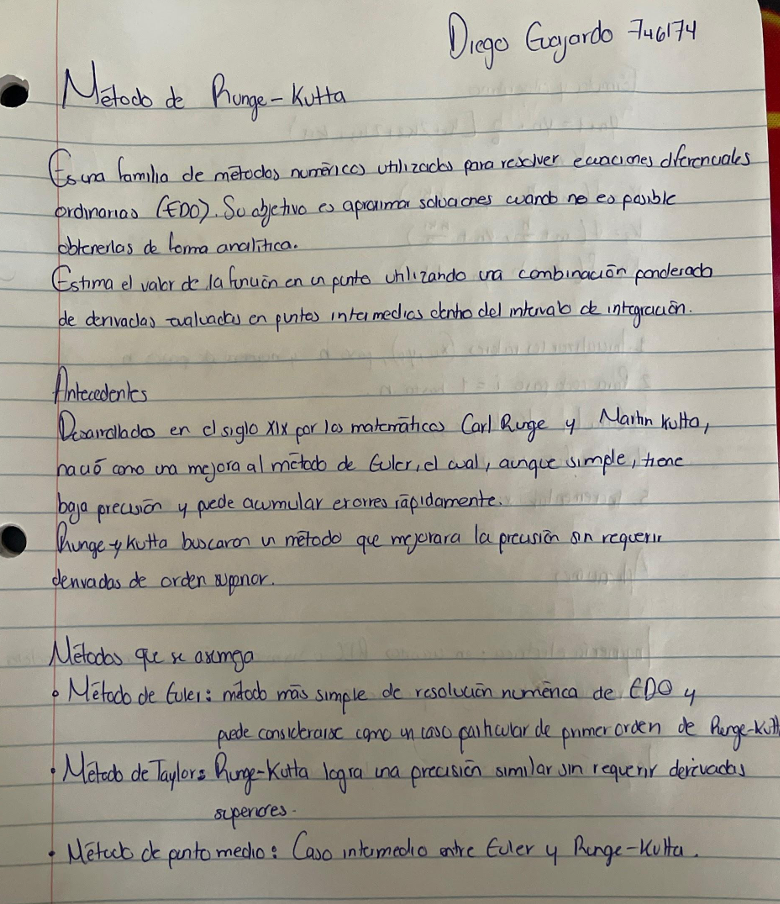 Diego Guajardo 746174
Método de Runge-Kutta
Es una familia de métodos numéricos utilizados para resolver ecuaciones diferenciales
ordinarias (EDO). Su objetivo es aproximar soluciones cuando no es posible
obtenerlas de forma analítica.
Estima el valor de la función en un punto utilizando una combinación ponderada
de derivadas evaluadas en puntos intermedios dentro del intervalo de integración.
Antecedentes
Desarrollados en el siglo XIX por los matemáticos Carl Runge y Martin Kutta,
nació como una mejora al método de Euler, el cual, aunque simple, tiene
baja precisión y puede acumular erorres rápidamente.
Runge y Kutta buscaron un método que mejorara la precisión sin requerir
derivadas de orden superior.
Métodos que se asemeja
• Método de Euler: método más simple de resolución numérica de EDO y
puede considerarse como un caso particular de primer orden de Runge-Kutt
• Método de Taylor: Runge-Kutta logra una precisión similar sin requerir derivadas
superiores.
• Método de punto medio: Caso intermedio entre Euler y Runge-Kutta.